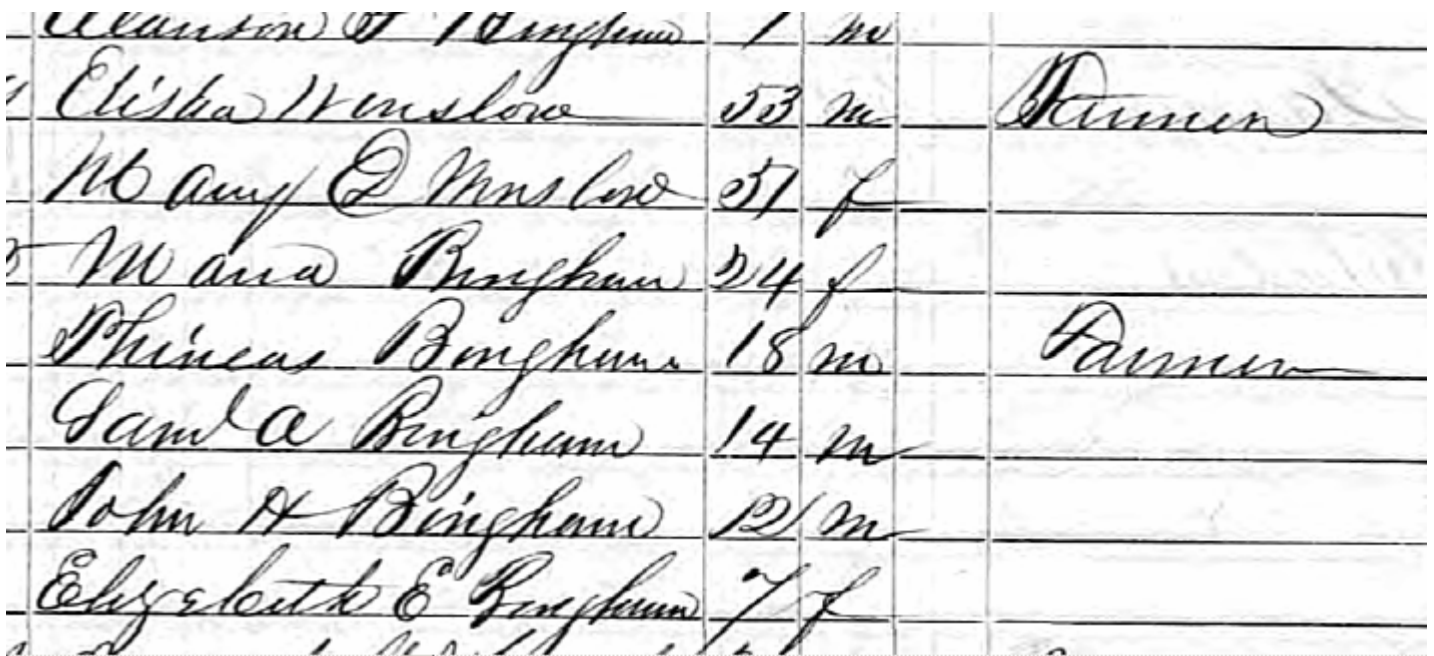 Alanson F Bingham 1 m
Elisha Winslow 53 m Farmer
Mary D Winslow 51 f
Maria Bingham 24 f
Phineas Bingham 18 m Farmer
Saml A Bingham 14 m
John H Bingham 12 m
Elizabeth E Bingham 7 f